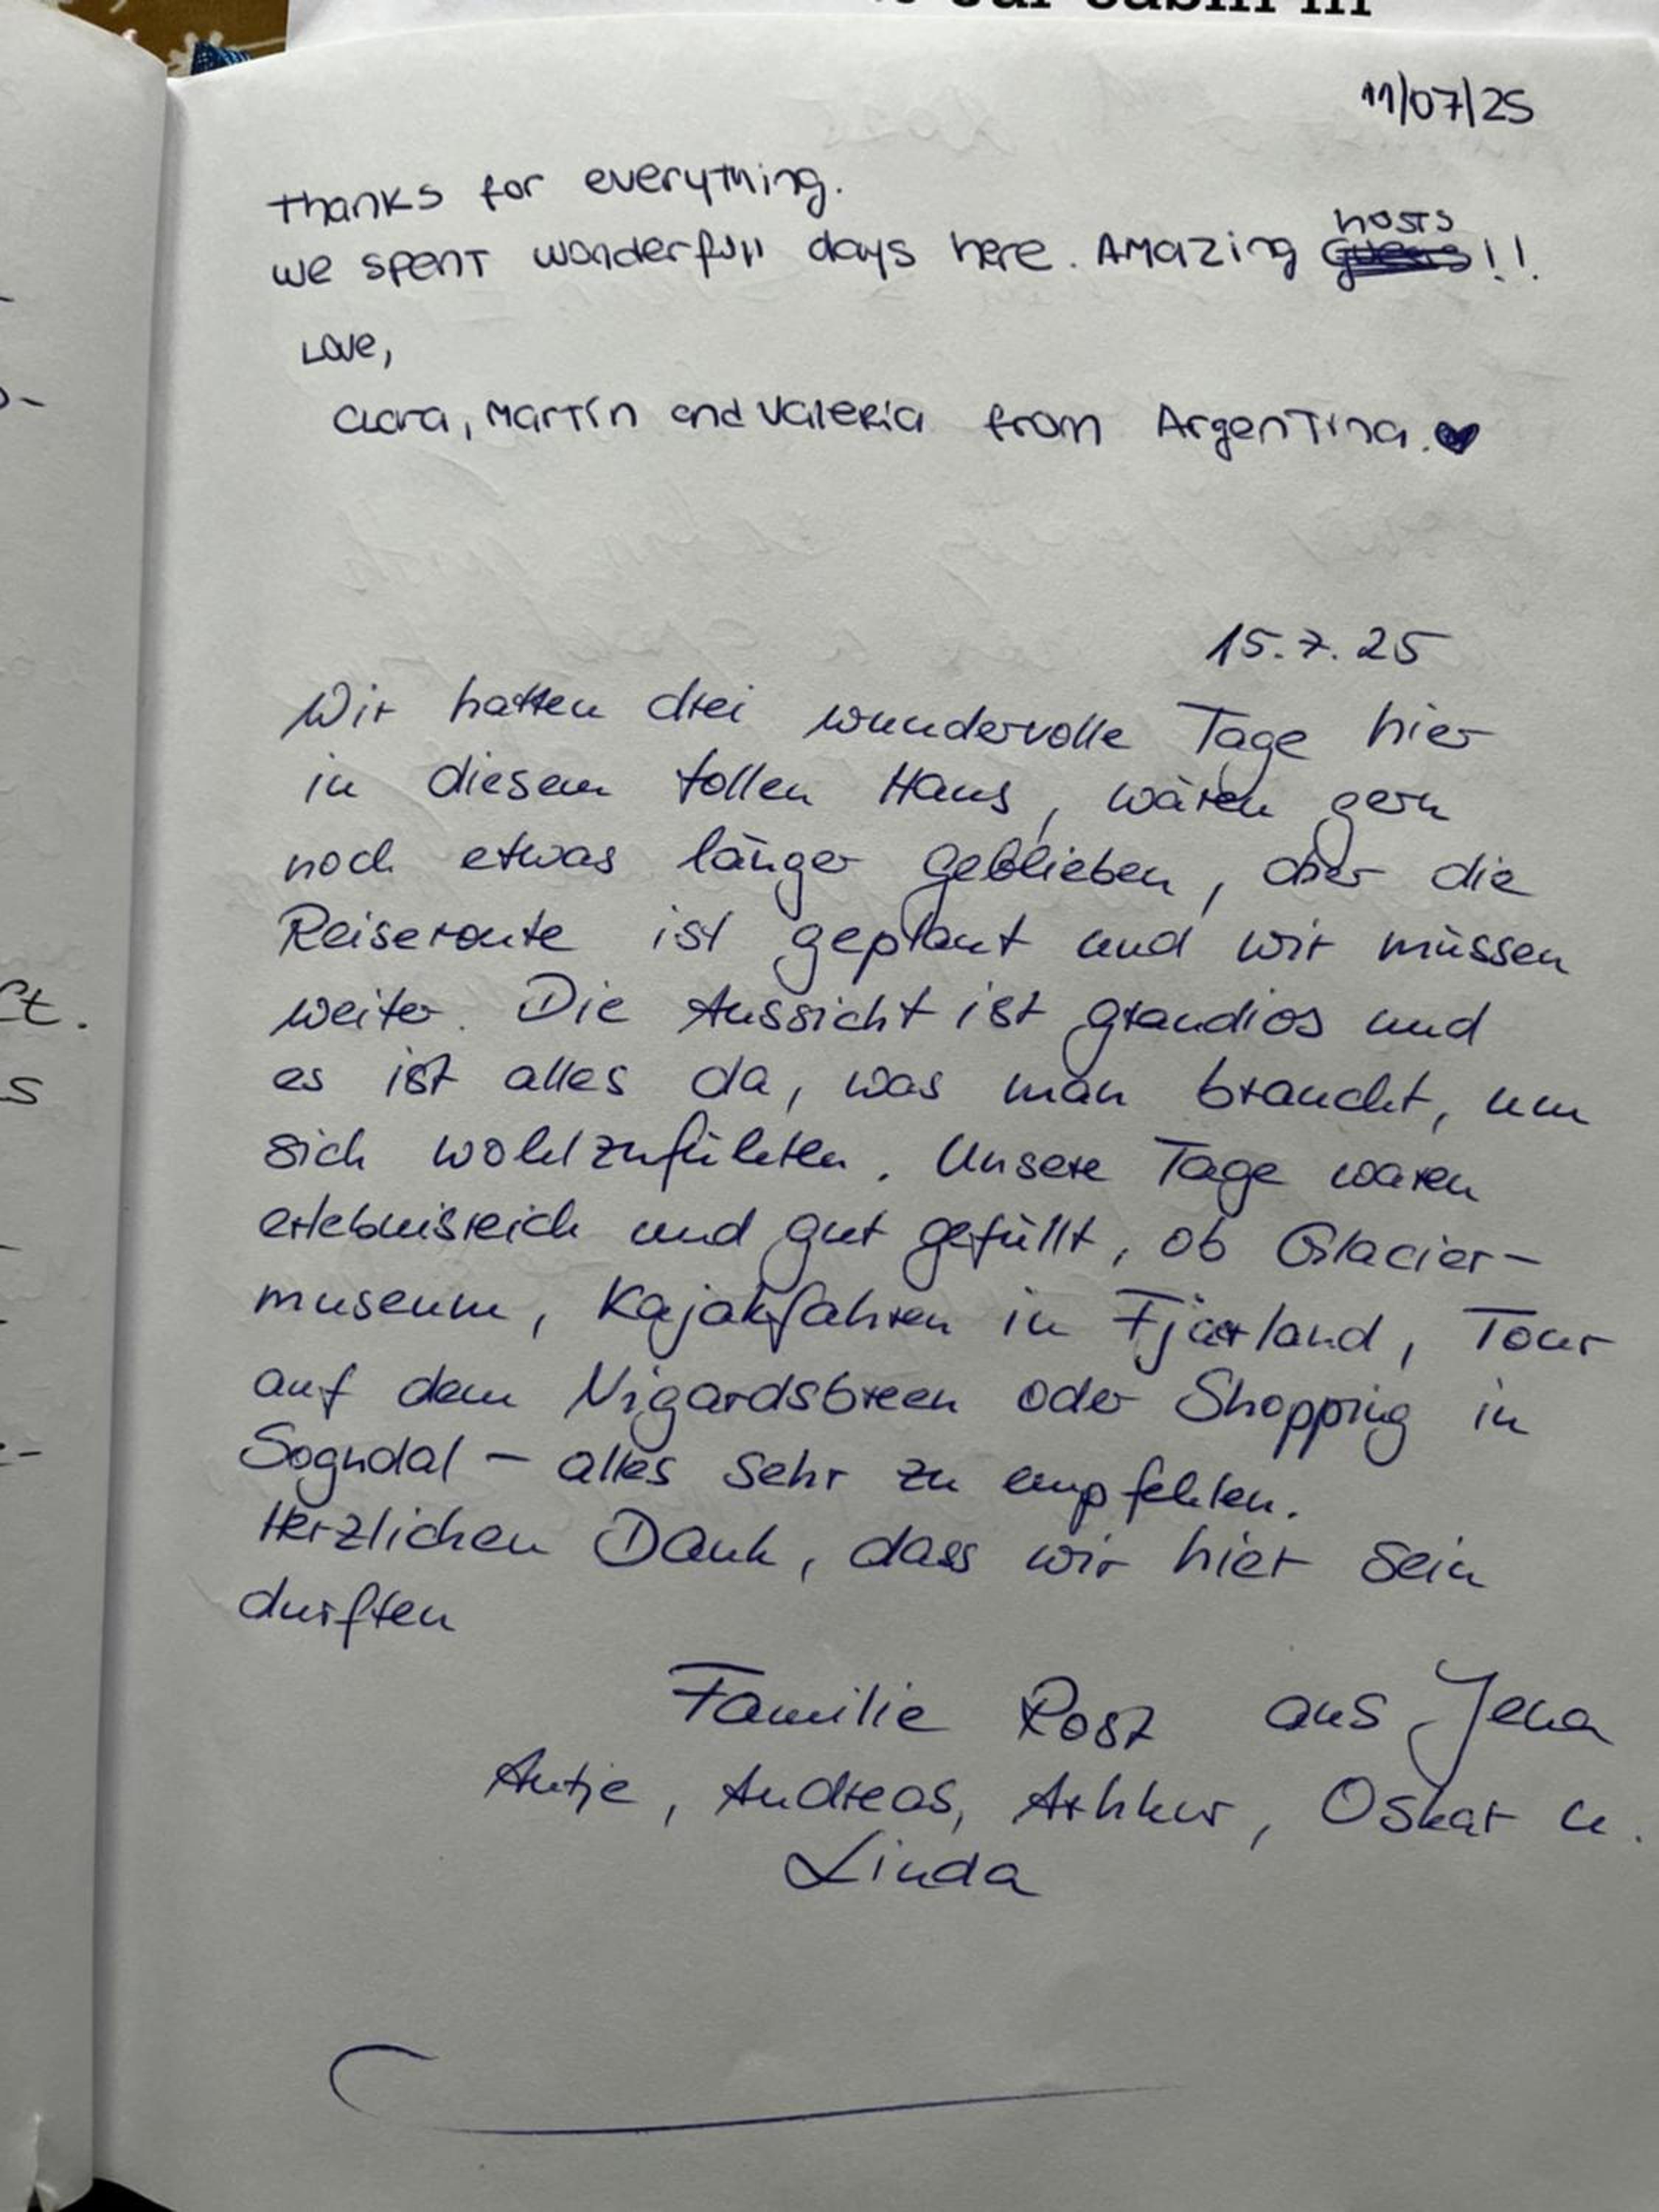 our cabin in
11/07/25
Thanks for everything.
we spent wonderfull days here. Amazing hosts!!
Love,
Clara, Martín and Valeria from Argentina. ♥
15.7.25
Wir hatten drei wundervolle Tage hier
in diesem tollen Haus, wären gern
noch etwas länger geblieben, aber die
Reiseroute ist geplant und wir müssen
weiter. Die Aussicht ist grandios und
es ist alles da, was man braucht, um
sich wohlzufühlen. Unsere Tage waren
erlebnisreich und gut gefüllt, ob Glacier-
museum, Kajakfahren in Fjærland, Tour
auf dem Nigardsbreen oder Shopping in
Sogndal – alles sehr zu empfehlen.
Herzlichen Dank, dass wir hier sein
durften
Familie Rost aus Jena
Antje, Andreas, Oskar u.
Linda
ct.
s